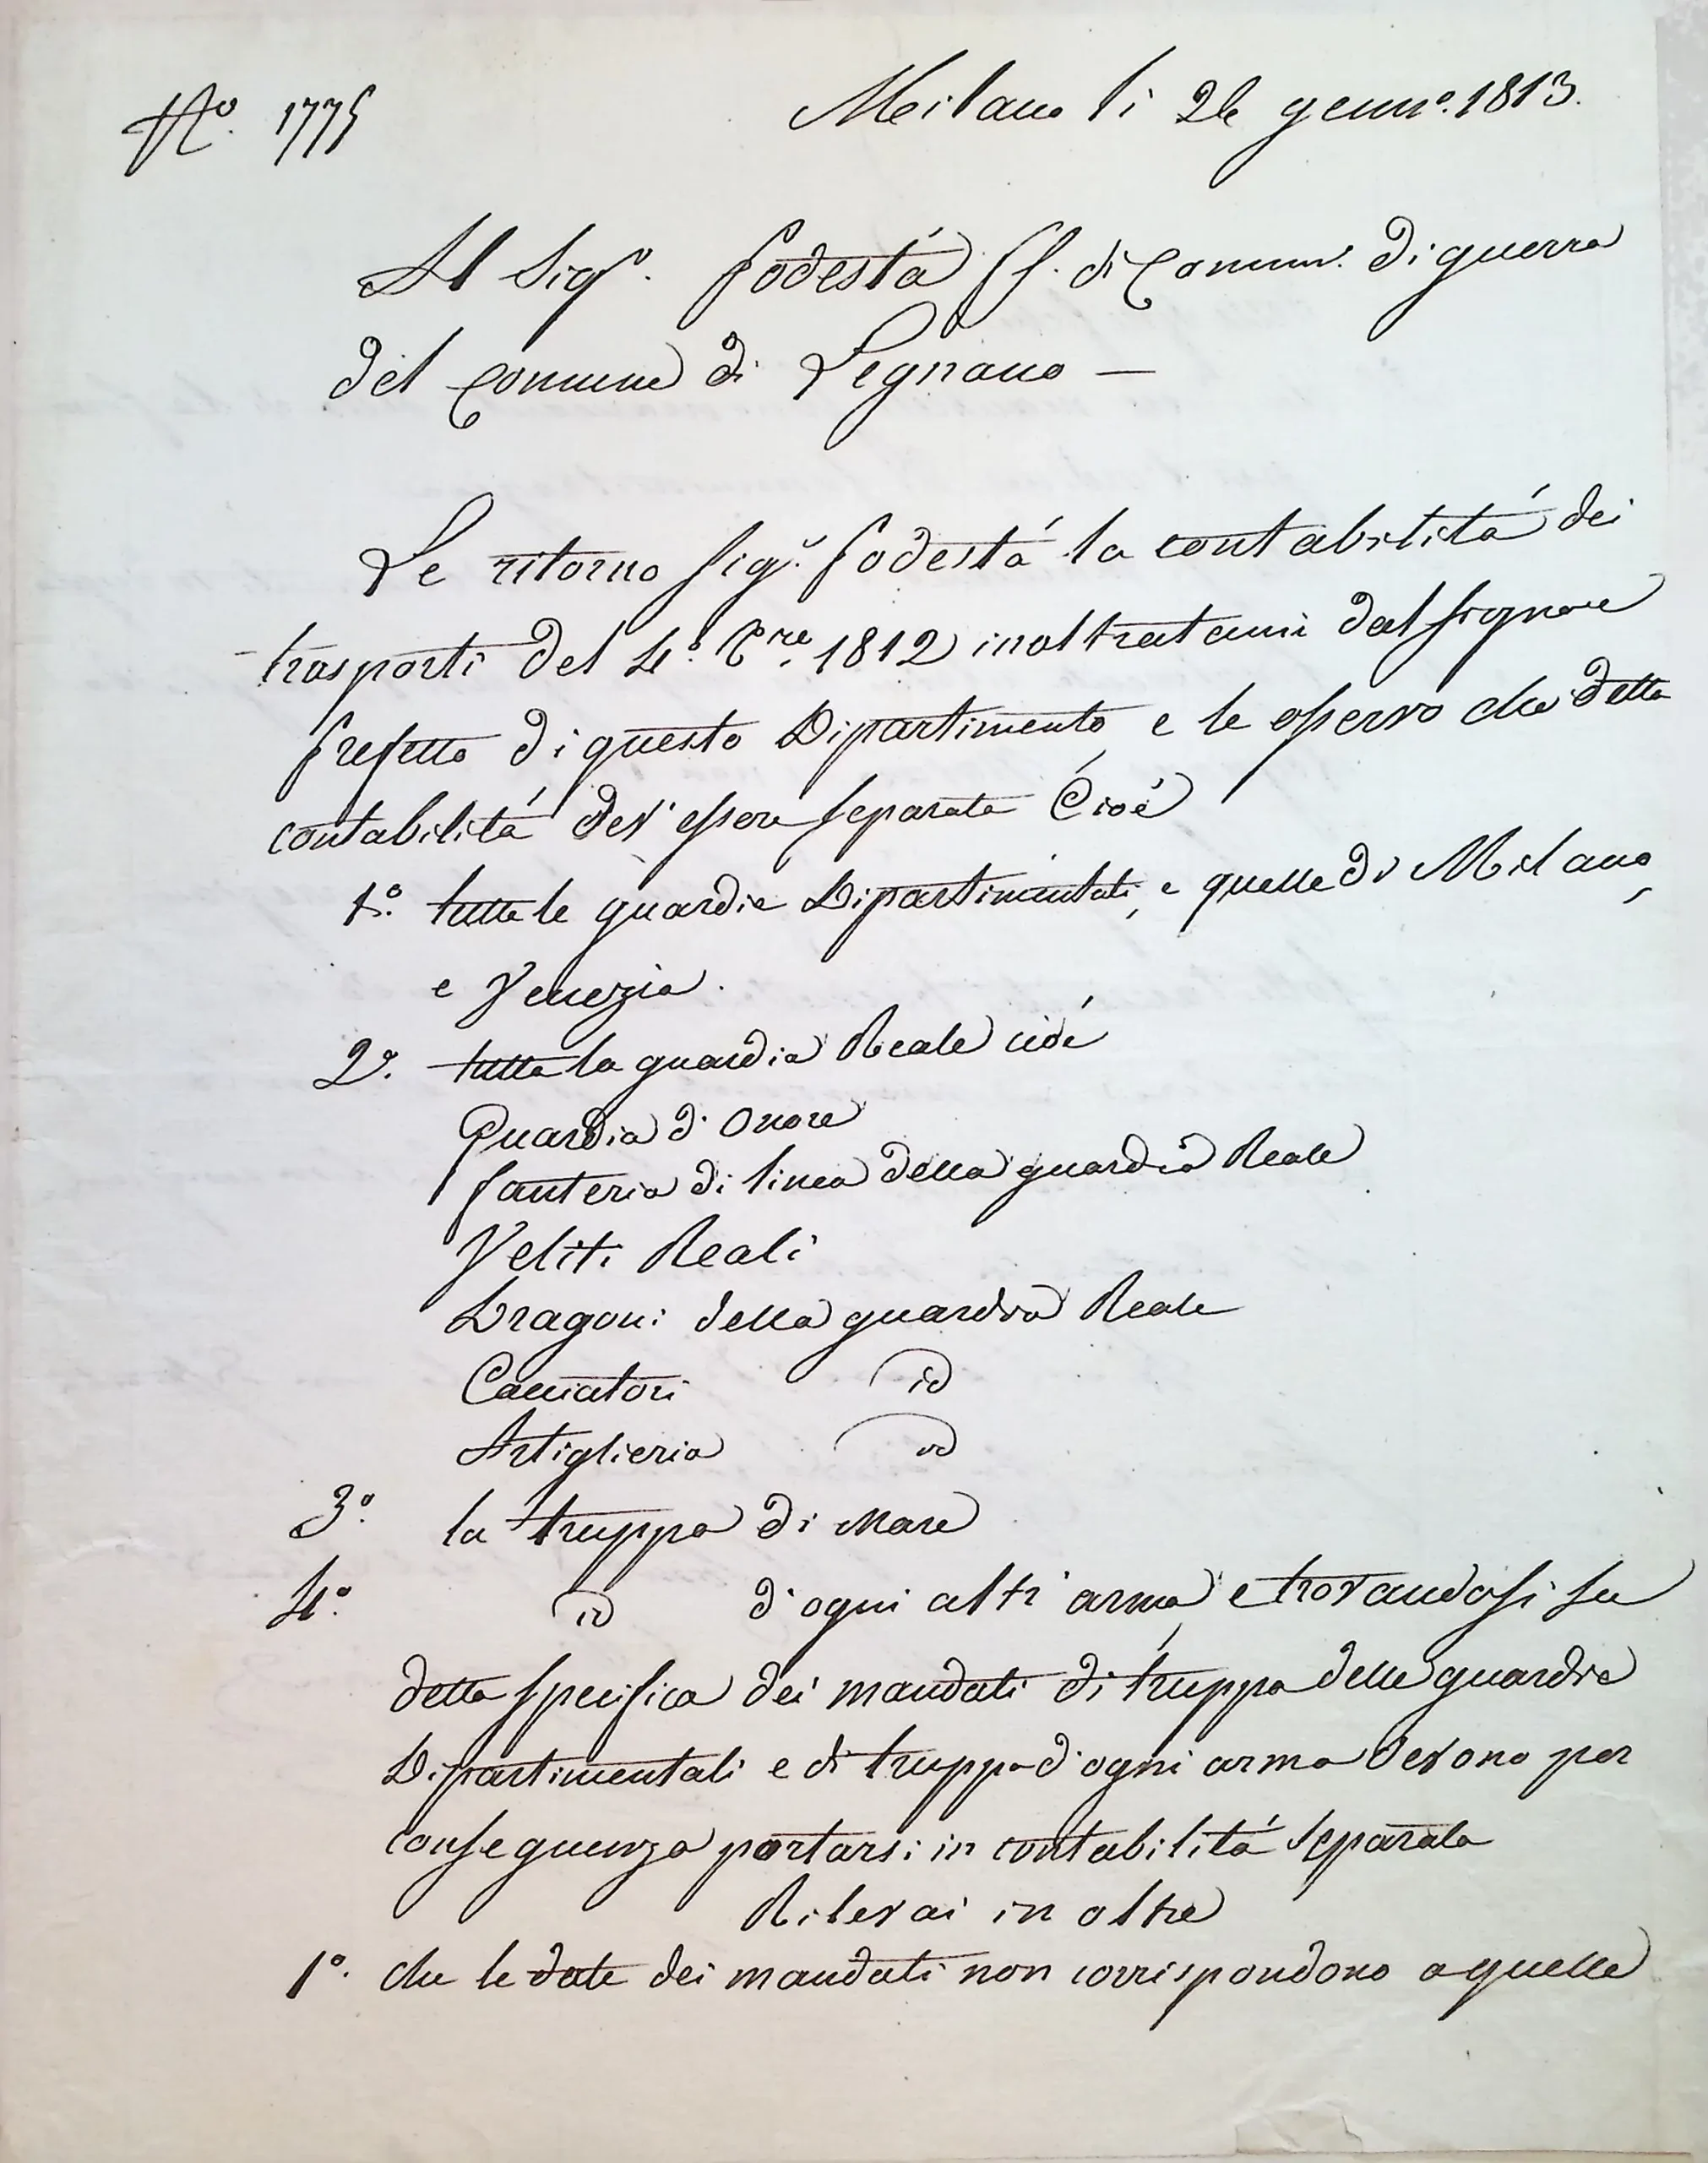 N.º 1775
Milano li 26 genn.º 1813.
Al Sig.º Podestá ff. di Comm. di guerra
del Comune di Legnano —
Le ritorno Sig.r Podestá la contabilitá dei
trasporti del 4.º Tre. 1812 inoltratami dal Signore
Prefetto di questo Dipartimento e le osservo che detta
contabilitá dev'essere separata Cioé
1.º tutte le guardie Dipartimentali, e quelle di Milano,
e Venezia.
2.º tutta la guardia Reale cioé
Guardia d'Onore
fanteria di linea della guardia Reale
Veliti Reali
Dragoni della guardia Reale
Cacciatori id
Artiglieria id
3.º la truppa di Mare
4.º id d'ogni altr'arma, e trovandosi su
detta specifica dei mandati di truppa delle guardie
Dipartimentali e di truppa d'ogni arma devono per
conseguenza portarsi in contabilitá separata
Rilevai in oltre
1.º che le date dei mandati non corrispondono a quelle